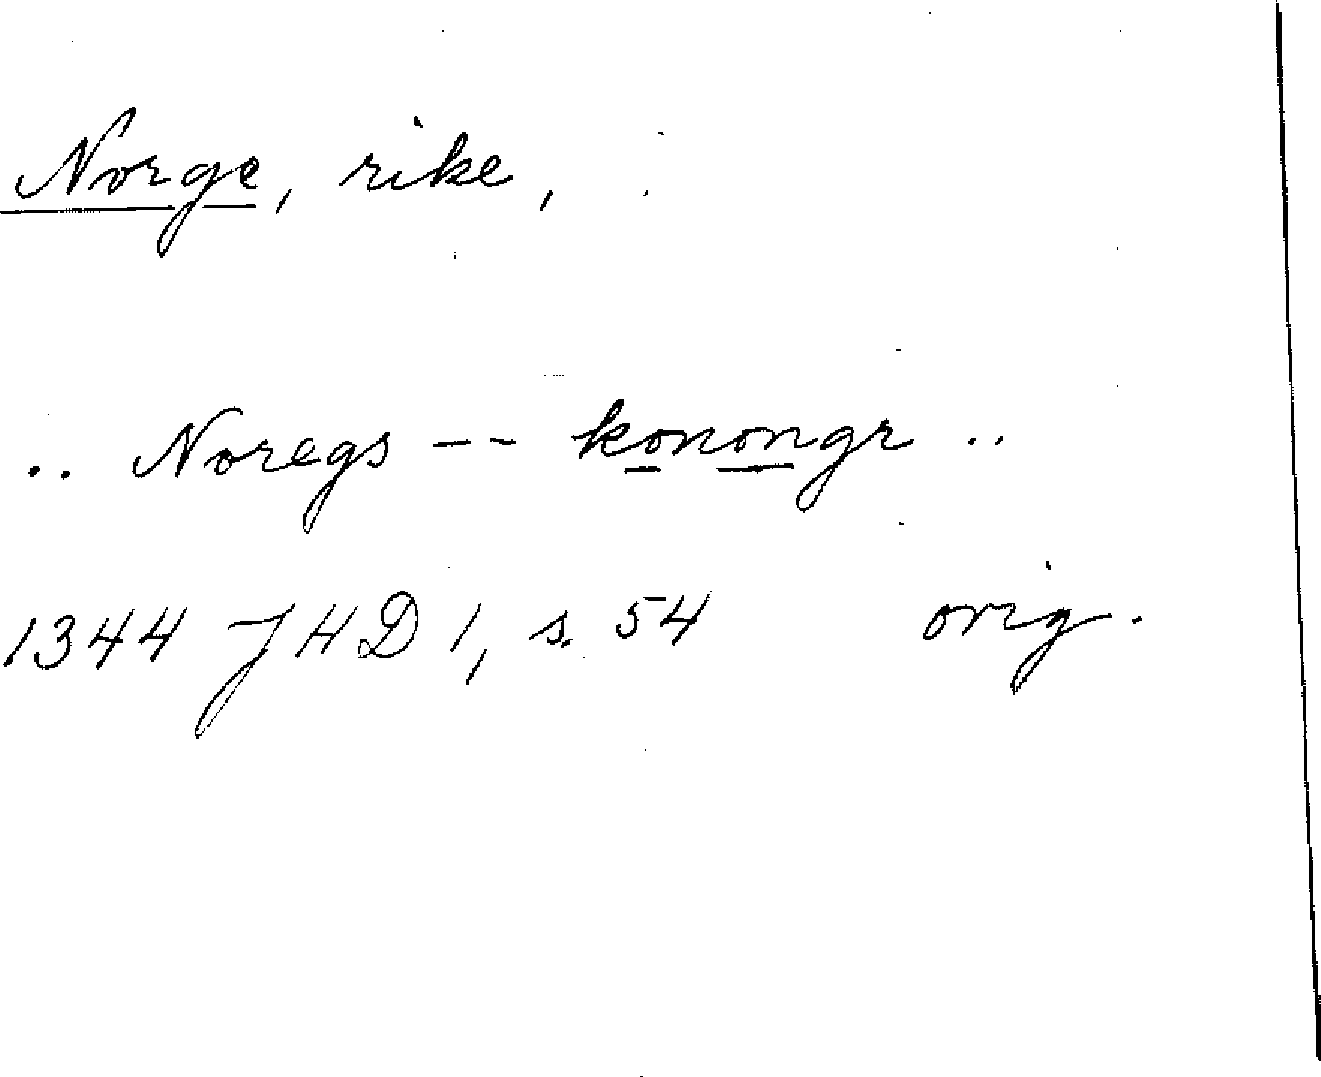 Norge, rike,
.. Noregs -- konongr ..
1344 JHD 1, s. 54 orig.